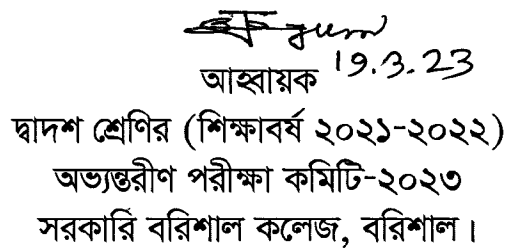 19.3.23
আহ্বায়ক
দ্বাদশ শ্রেণির (শিক্ষাবর্ষ ২০২১-২০২২)
অভ্যন্তরীণ পরীক্ষা কমিটি-২০২৩
সরকারি বরিশাল কলেজ, বরিশাল।